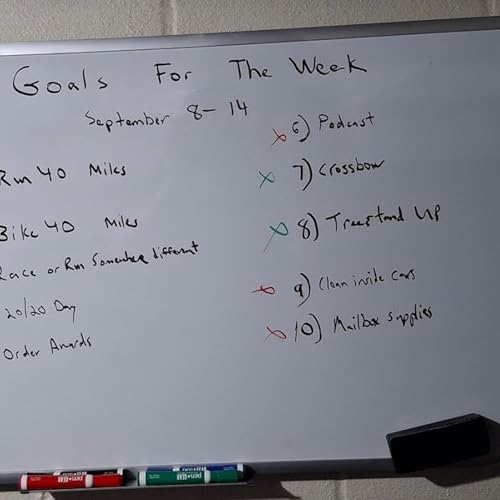 Goals For The Week
September 8-14
Run 40 Miles
Bike 40 Miles
Race or Run Somewhere different
20/20 Day
Order Awards
x 6) Podcast
x 7) Crossbow
x 8) Treestand Up
x 9) Clean inside cars
x 10) Mailbox supplies